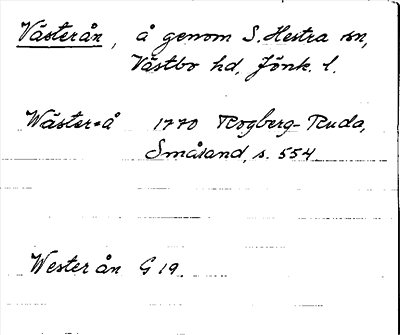 Västerån, å genom S. Hestra sn,
Västbo hd, Jönk. l.
Wäster=å 1770 Rogberg-Ruda,
Småland, s. 554
Wester ån G 19.